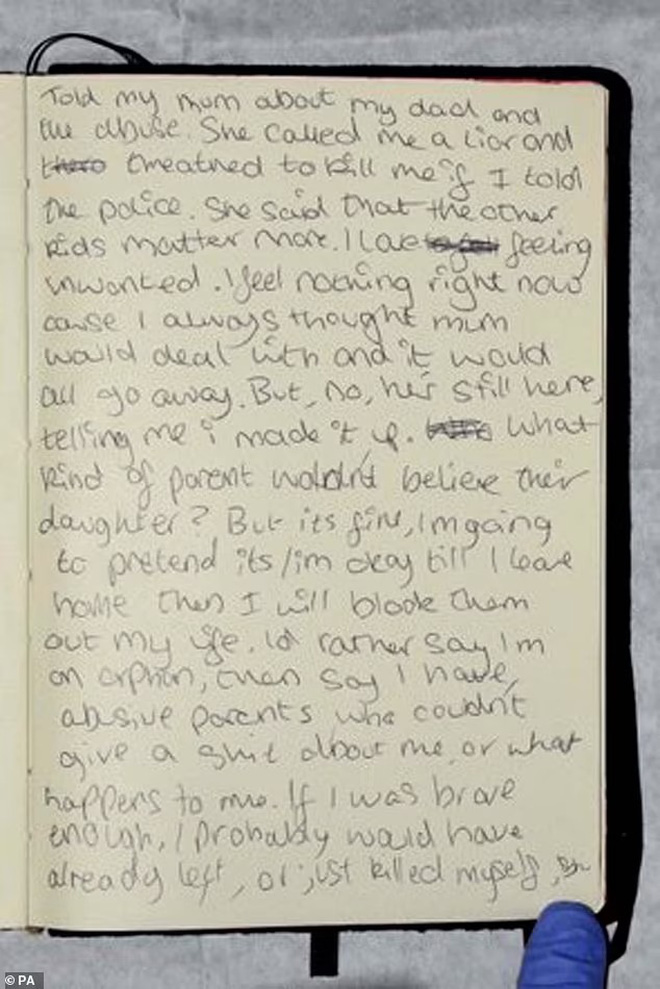 Told my mum about my dad and
the abuse. She called me a liar and
threatned to kill me if I told
the police. She said that the other
kids matter more. I feeling
unwanted. I feel nothing right now
cause I always thought mum
would deal with and it would
all go away. But, no, he's still here,
telling me i made it up. What
kind of parent wouldn't believe their
daughter? But its fine, I'm going
to pretend its/im okay till I leave
home then I will block them
out my life. I'd rather say I'm
an orphan, then say I have,
abusive parents who couldn't
give a shit about me, or what
happens to me. If I was brave
enough, I probably would have
already left, or just killed myself,
© PA